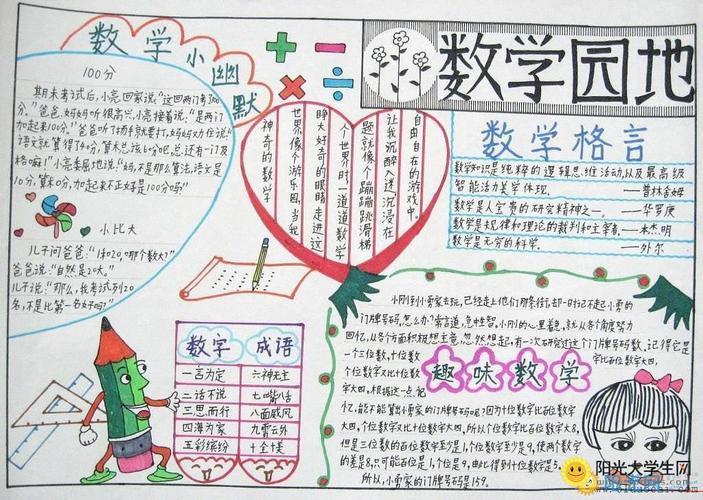 数学小幽默
100分
期末考试后,小亮回家说:“这回两门考100
分。”爸爸、妈妈听很高兴,小亮接着说:“是两门
加起来100分。”爸爸听了扬手就要打,妈妈劝住说:
“语文就算得40分,算术总该60分吧,总还有一门及
格嘛!”小亮委屈地说:“妈,不是那么算法,语文是
10分,算术0分,加起来不正好是100分吗?”
小比大
儿子问爸爸:“1和20,哪个数大?”
爸爸说:“自然是20大。”
儿子说:“那么,我考试列20
名,不是比第一名好吗?”
神奇的数学
世界像个游乐园,当我
睁大好奇的眼睛走进这
个世界时,一道道数学
题就像个蹦蹦跳滑梯
让我沉醉入迷,沉浸在
自由自在的游戏中。
数学园地
数学格言
数学知识是纯粹的逻辑思维活动,以及最高级
智能活力美学体现.——普林舍姆
数学是人宝贵的研究精神之一。——华罗庚
数学是规律和理论的裁判和主宰者。——本杰明
数学是无穷的科学。——外尔
数字 成语
一言为定 六神无主
二话不说 七嘴八舌
三思而行 八面威风
四海为家 九霄云外
五彩缤纷 十全十美
趣味数学
小刚到小亮家去玩,已经走上他们那条街,却一时记不起小亮的
门牌号码,怎么办?常言道,急中生智,小刚的心里着急,就从各个角度努力
回忆,从各个方面积极想主意,忽然想起,有一次研究过这个门牌号码数,记得它是
一个三位数,十位数
字比百位数字大四,
个位数字又比十位数
字大四。根据这一点记
忆,能不能算出小亮家的门牌号码呢?因为十位数字比百位数字
大四,个位数字又比十位数字大四,所以个位数字比百位数字大8,
但是三位数的百位数字至少是1,个位数字至少是9,使两个数字
的差是8,只可能百位是1,个位是9,由此得到十位数字是5。
所以,小亮家的门牌号码是159。
阳光大学生网